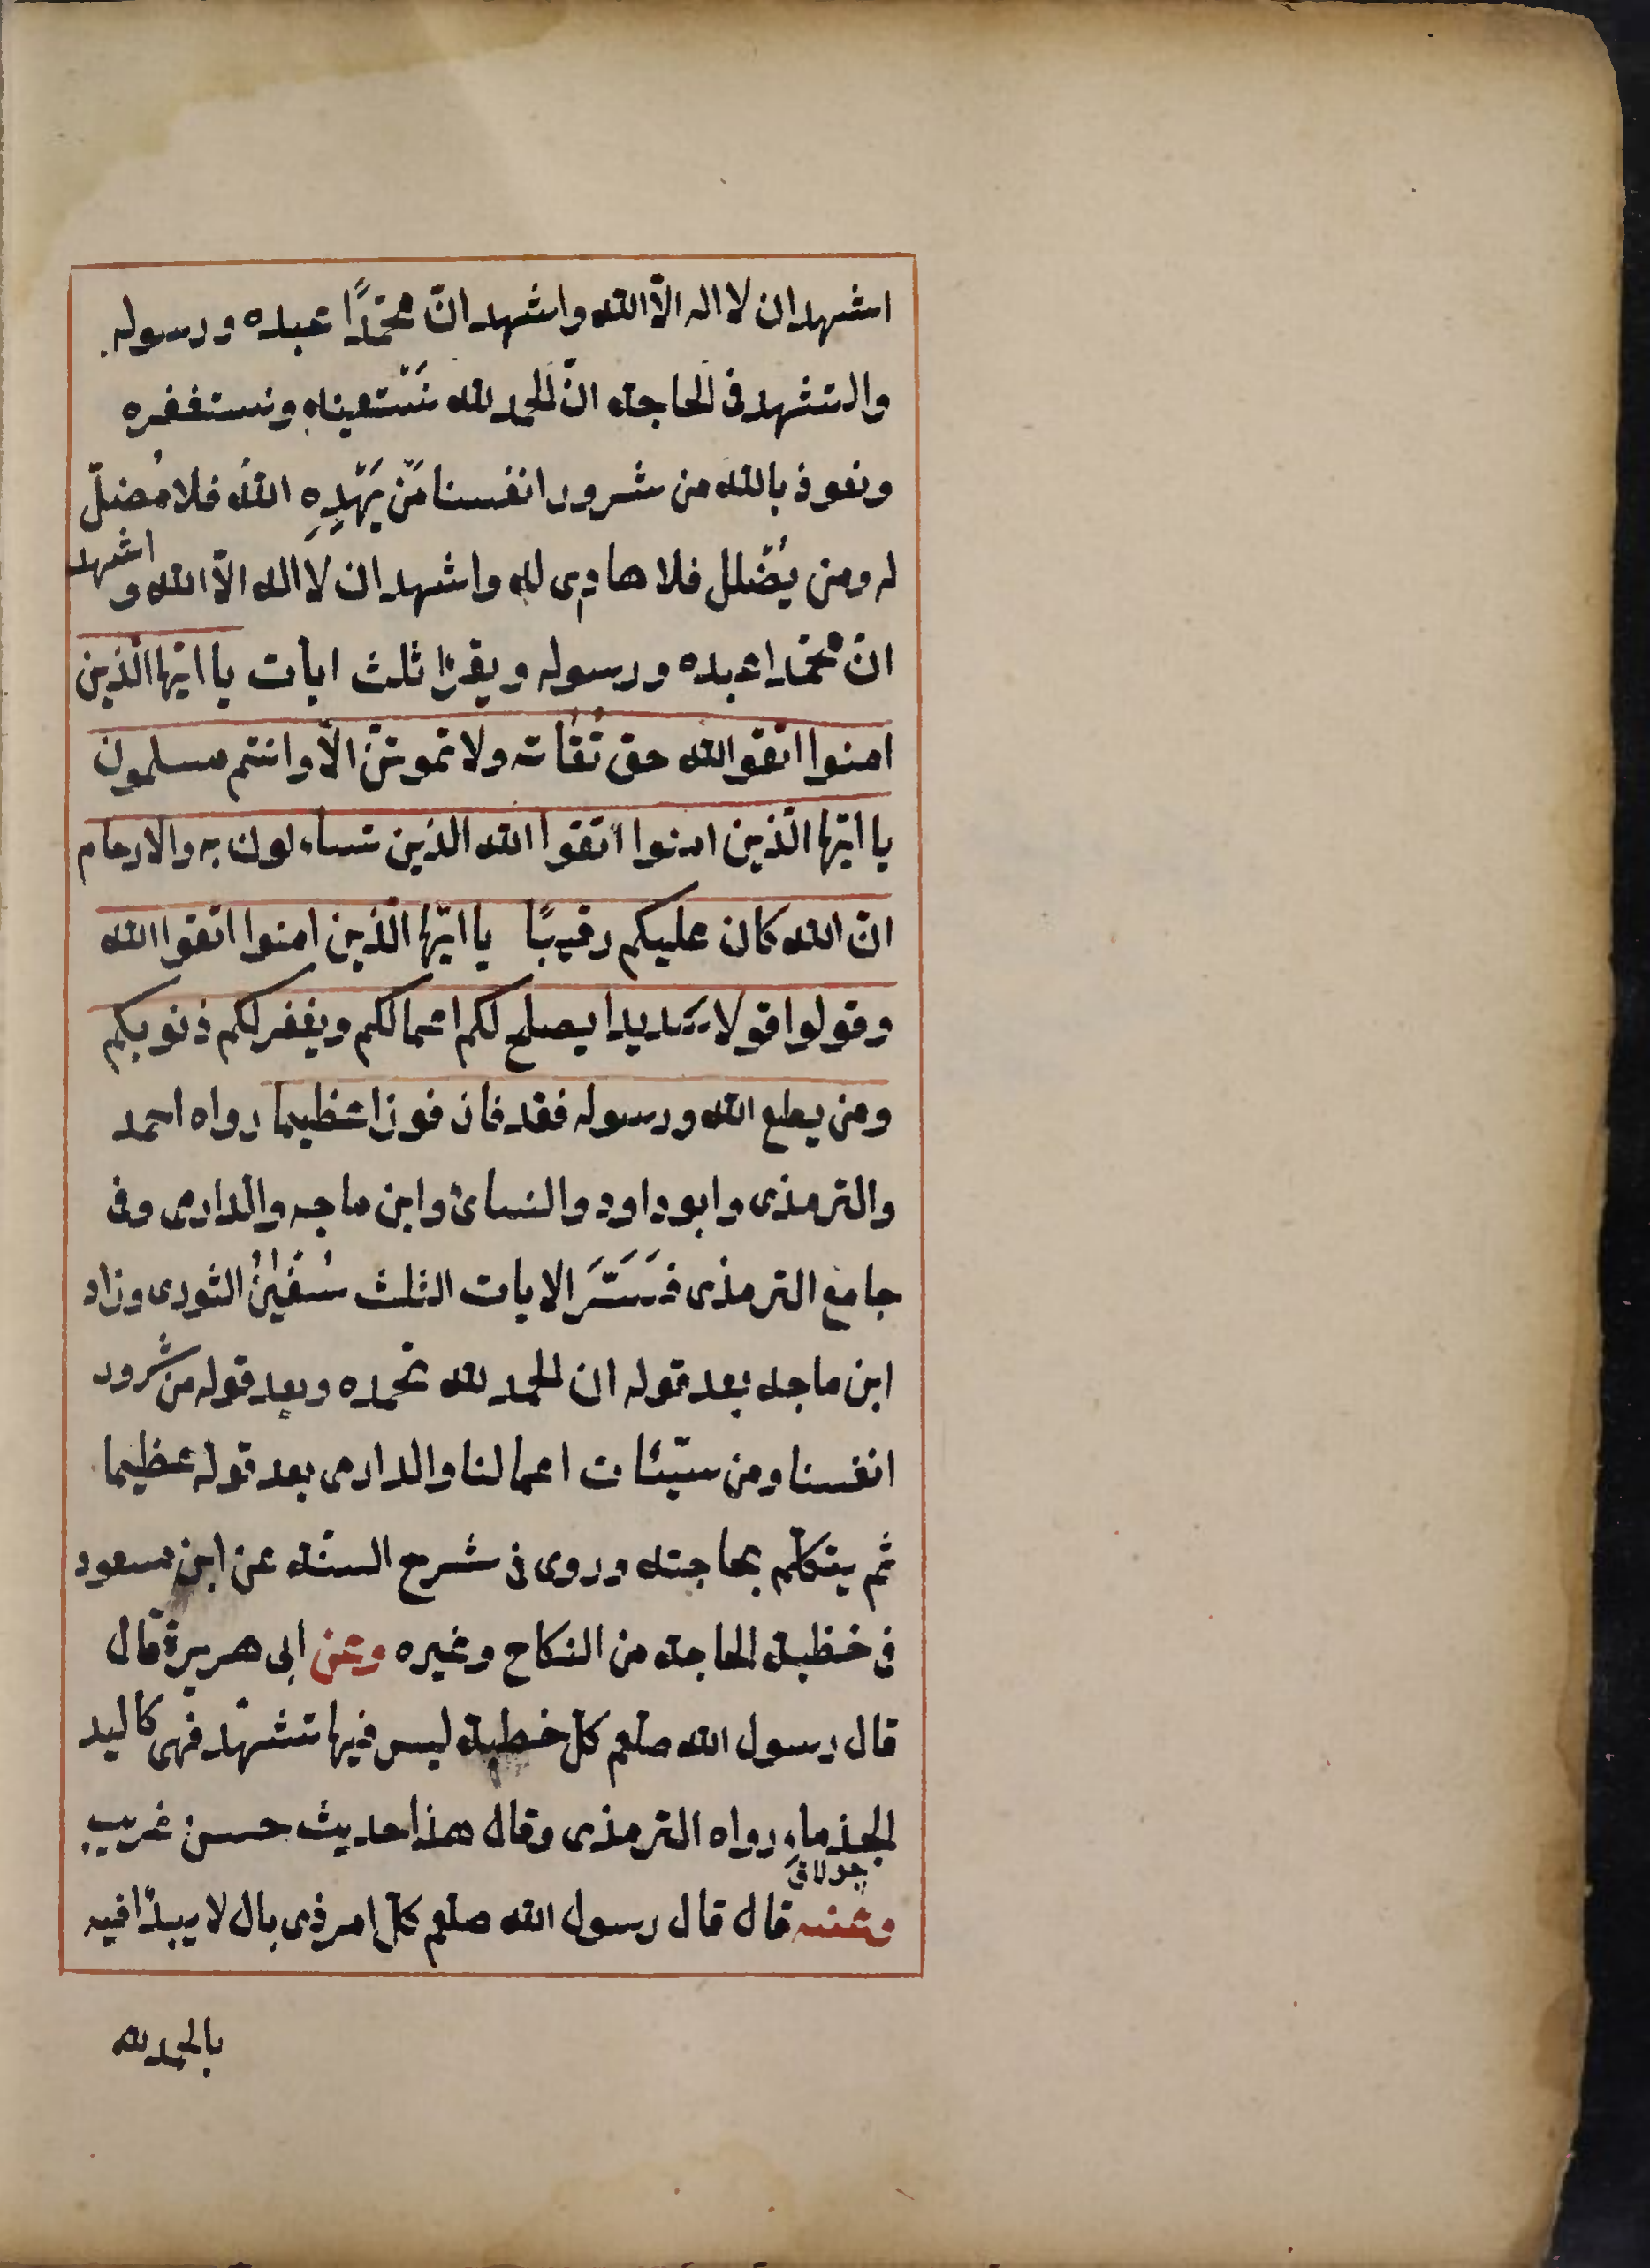 اشهد ان لا اله الّا الله واشهد انّ محمّدًا عبده ورسوله
والتشهد فى الحاجة انّ الحمد لله نَسْتعينه ونستغفره
ونعوذ بالله من شرور انفسنا مَنْ يَهْدِهِ الله فلا مُضلّ
له ومن يُضْلل فلا هادى له واشهد ان لا اله الّا الله و اشهد
انّ محمّدا عبده ورسوله ويقرؤا ثلث ايات يا ايّها الّذين
امنوا اتقوا الله حق تُقاته ولا تموتنّ الّا وانتم مسلمون
يا ايّها الّذين امنوا اتّقوا الله الذين تساءلون به والارحام
انّ الله كان عليكم رقيبًا يا ايّها الّذين امنوا اتّقوا الله
وقولوا قولا سديدا يصلح لكم اعمالكم ويغفر لكم ذنوبكم
ومن يطع الله ورسوله فقد فاز فوزا عظيما رواه احمد
والترمذى وابو داود والنسائ وابن ماجه والدارمى وفى
جامع الترمذى فَسَّرَ الايات الثلث سُفْيٰنُ الثورى وزاد
ابن ماجه بعد قوله ان الحمد لله نحمده وبعد قوله من شرور
انفسنا ومن سيّئات اعمالنا والدارمى بعد قوله عظيما
ثم يتكلّم بحاجته وروى فى شرح السنّة عن ابن مسعود
فى خطبة الحاجة من النكاح وغيره وعن ابى هريرة قال
قال رسول الله صلعم كلّ خطبة ليس فيها تشهّد فهى كاليد
الجذماء رواه الترمذى وقال هذا حديث حسن غريب
وعنه قال قال رسول الله صلعم كلّ امر ذى بال لا يبدأ فيه
بالحمد لله